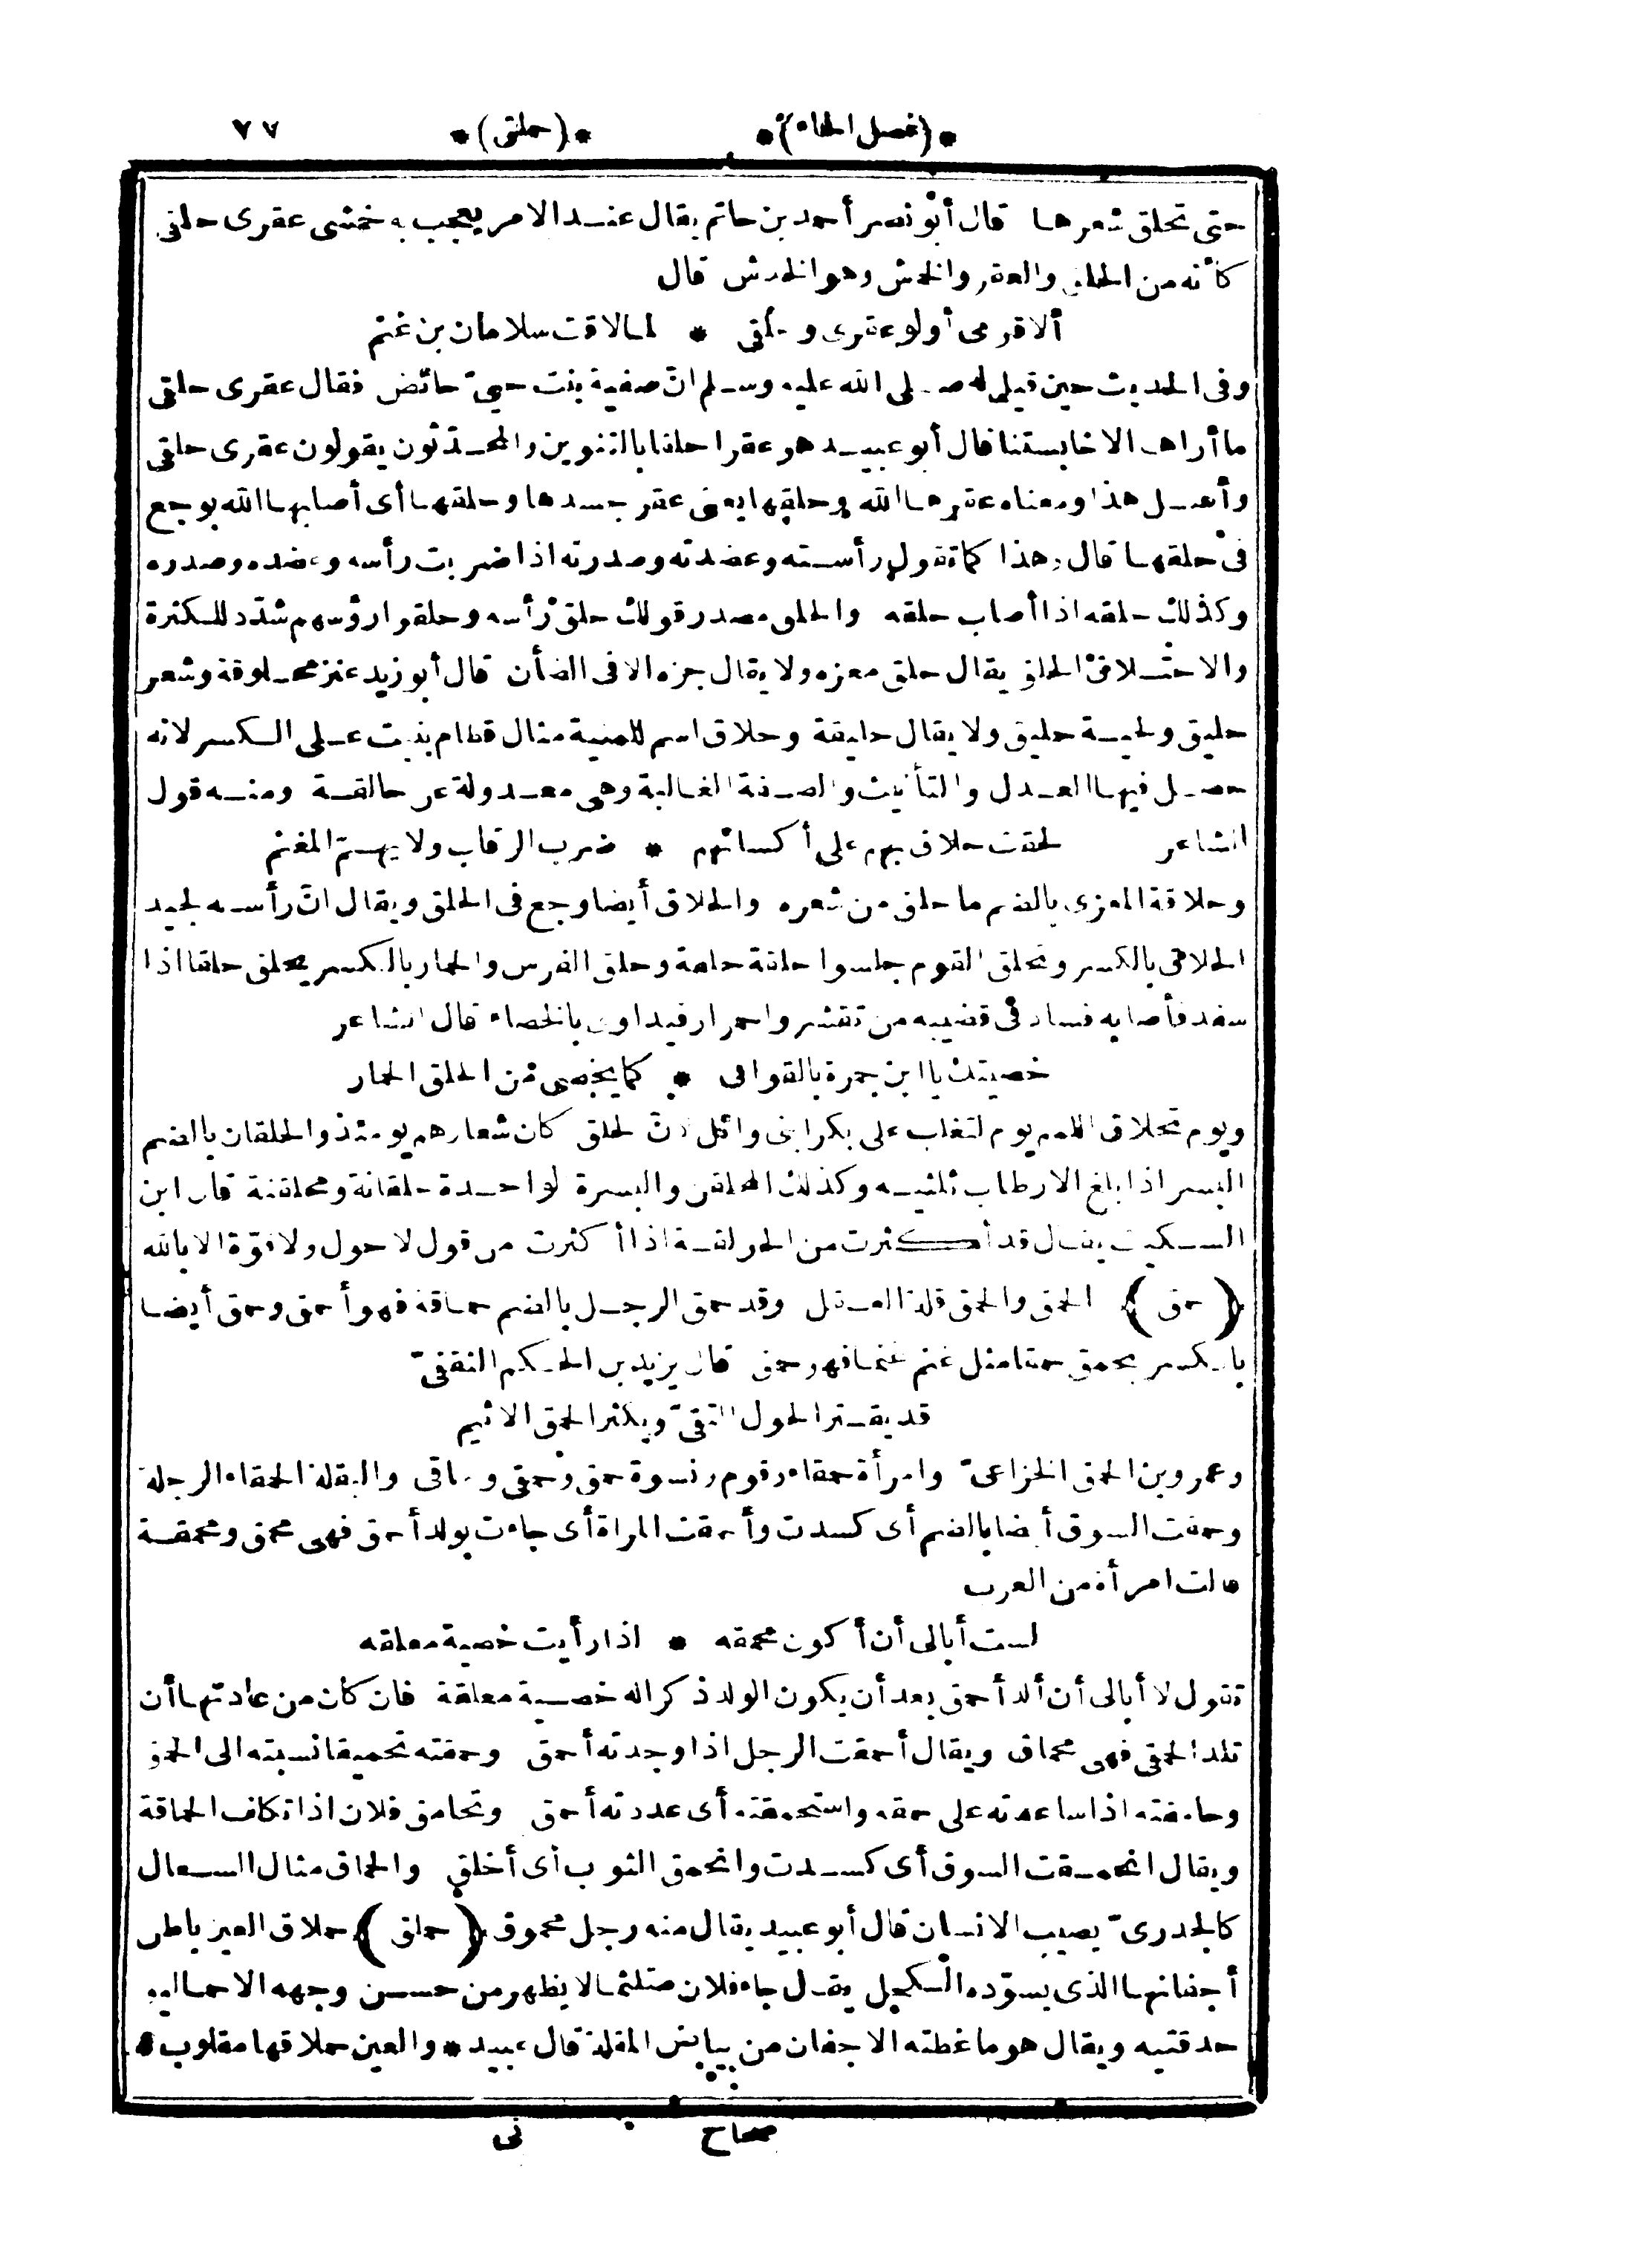 *(فصل الحاء)* *(حملق)* ٧٧
حتى تحلق شعرها قال أبو نصر أحمد بن حاتم يقال عند الامر يعجب به خمشى عقرى حلقى
كأنه من الحلق والعقر والخمش وهو الخدش قال
ألا قومى أولو عقرى وحلقى * لما لاقت سلامان بن غنم
وفى الحديث حين قيل له صلى الله عليه وسلم انّ صفية بنت حيىّ حائض فقال عقرى حلقى
ما أراها الا حابستنا قال أبو عبيد هو عقرا حلقا بالتنوين والمحدّثون يقولون عقرى حلقى
وأصل هذا ومعناه عقرها الله وحلقها يعنى عقر جسدها وحلقها أى أصابها الله بوجع
فى حلقها قال وهذا كما تقول رأسته وعضدته وصدرته اذا ضربت رأسه وعضده وصدره
وكذلك حلقه اذا أصاب حلقه والحلق مصدر قولك حلق رأسه وحلقوا رؤسهم شدّد للكثرة
والاحتلاق الحلق يقال حلق معزه ولا يقال جزه الا فى الضأن قال أبو زيد عنز محلوقة وشعر
حليق ولحية حليق ولا يقال حليقة وحلاق اسم للمنية مثال قطام بنيت على الكسر لانه
حصل فيها العدل والتأنيث والصفة الغالبة وهى معدولة عن حالقة ومنه قول
الشاعر لحقت حلاق بهم على أكسائهم * ضرب الرقاب ولا يهمّ المغنم
وحلاقة المعزى بالضم ما حلق من شعره والحلاق أيضا وجع فى الحلق ويقال انّ رأسه لجيد
الحلاق بالكسر وتحلق القوم جلسوا حلقة حلقة وحلق الفرس والحمار بالكسر يحلق حلقا اذا
سفد فأصابه فساد فى قضيبه من تقشر واحمرار فيداوى بالخصاء قال الشاعر
خصيتك يا ابن جمرة بالقوافى * كما يخصى من الحلق الحمار
ويوم تحلاق اللمم يوم لتغلب على بكر ابنى وائل لانّ الحلق كان شعارهم يومئذ والحلقان بالضم
البسر اذا بلغ الارطاب ثلثيه وكذلك المحلقن والبسرة الواحدة حلقانة ومحلقنة قال ابن
السكيت يقال قد أكثرت من الحولقة اذا أكثرت من قول لا حول ولا قوّة الا بالله
(حمق) الحمق والحمق قلة العقل وقد حمق الرجل بالضم حماقة فهو أحمق وحمق أيضا
بالكسر يحمق حمقا مثل غنم غنما فهو حمق قال يزيد بن الحكم الثقفىّ
قد يقتر الحول التقىّ ويكثر الحمق الاثيم
وعمرو بن الحمق الخزاعىّ وامرأة حمقاء وقوم ونسوة حمق وحمقى وحماقى والبقلة الحمقاء الرجلة
وحمقت السوق أيضا بالضم أى كسدت وأحمقت المراة أى جاءت بولد أحمق فهى محمق ومحمقة
قالت امرأة من العرب
لست أبالى أن أكون محمقه * اذا رأيت خصية معلقه
تقول لا أبالى أن ألد أحمق بعد أن يكون الولد ذكرا له خصية معلقة فان كان من عادتها أن
تلد الحمقى فهى محماق ويقال أحمقت الرجل اذا وجدته أحمق وحمقته تحميقا نسبته الى الحمق
وحامقته اذا ساعدته على حمقه واستحمقته أى عددته أحمق وتحامق فلان اذا تكلف الحماقة
ويقال انحمقت السوق أى كسدت وانحمق الثوب أى أخلق والحماق مثال السعال
كالجدرىّ يصيب الانسان قال أبو عبيد يقال منه رجل محموق (حملق) حملاق العين باطن
أجفانها الذى يسوّده الكحل يقال جاء فلان متلثما لا يظهر من حسن وجهه الا حماليق
حدقتيه ويقال هو ما غطته الاجفان من بياض المقلة قال عبيد * والعين حملاقها مقلوب *
صحاح نى